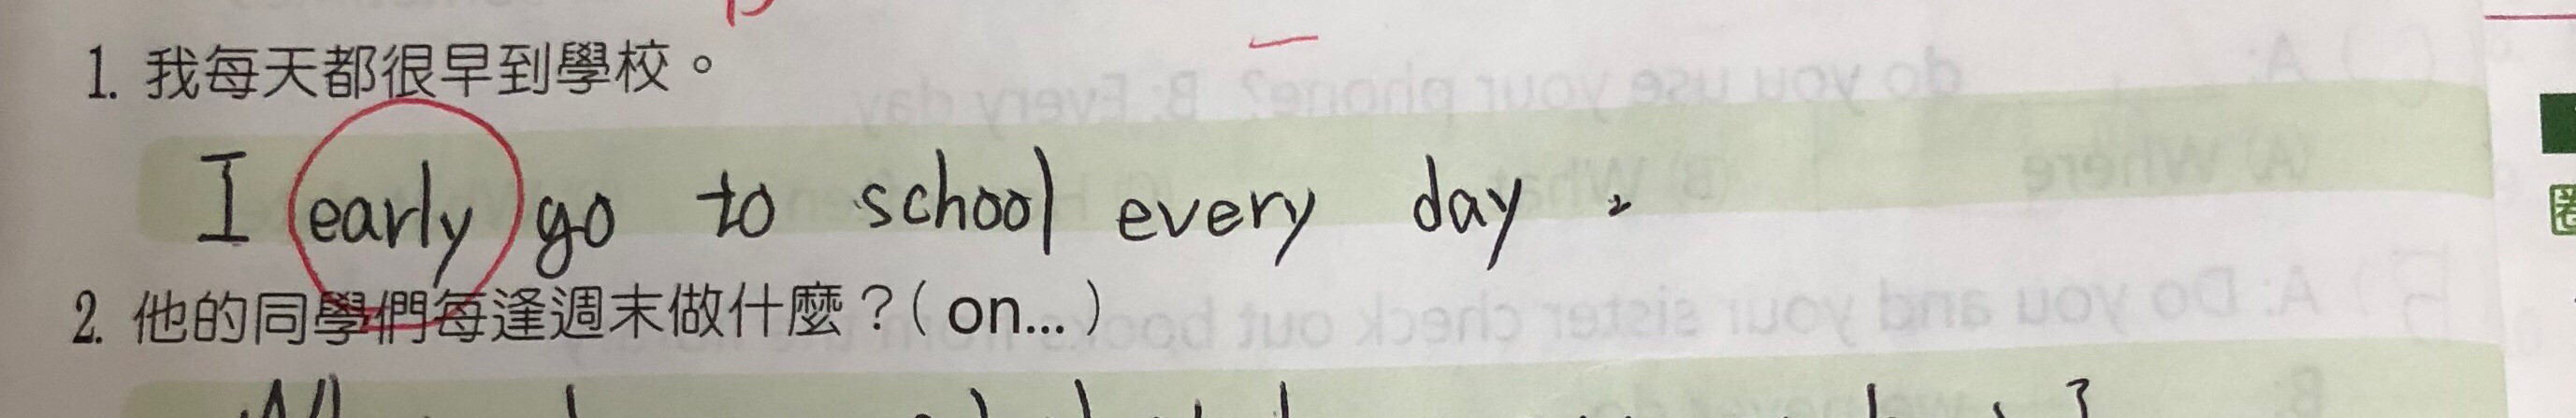 1. 我每天都很早到學校。
I early go to school every day.
2. 他的同學們每逢週末做什麼？(on...)